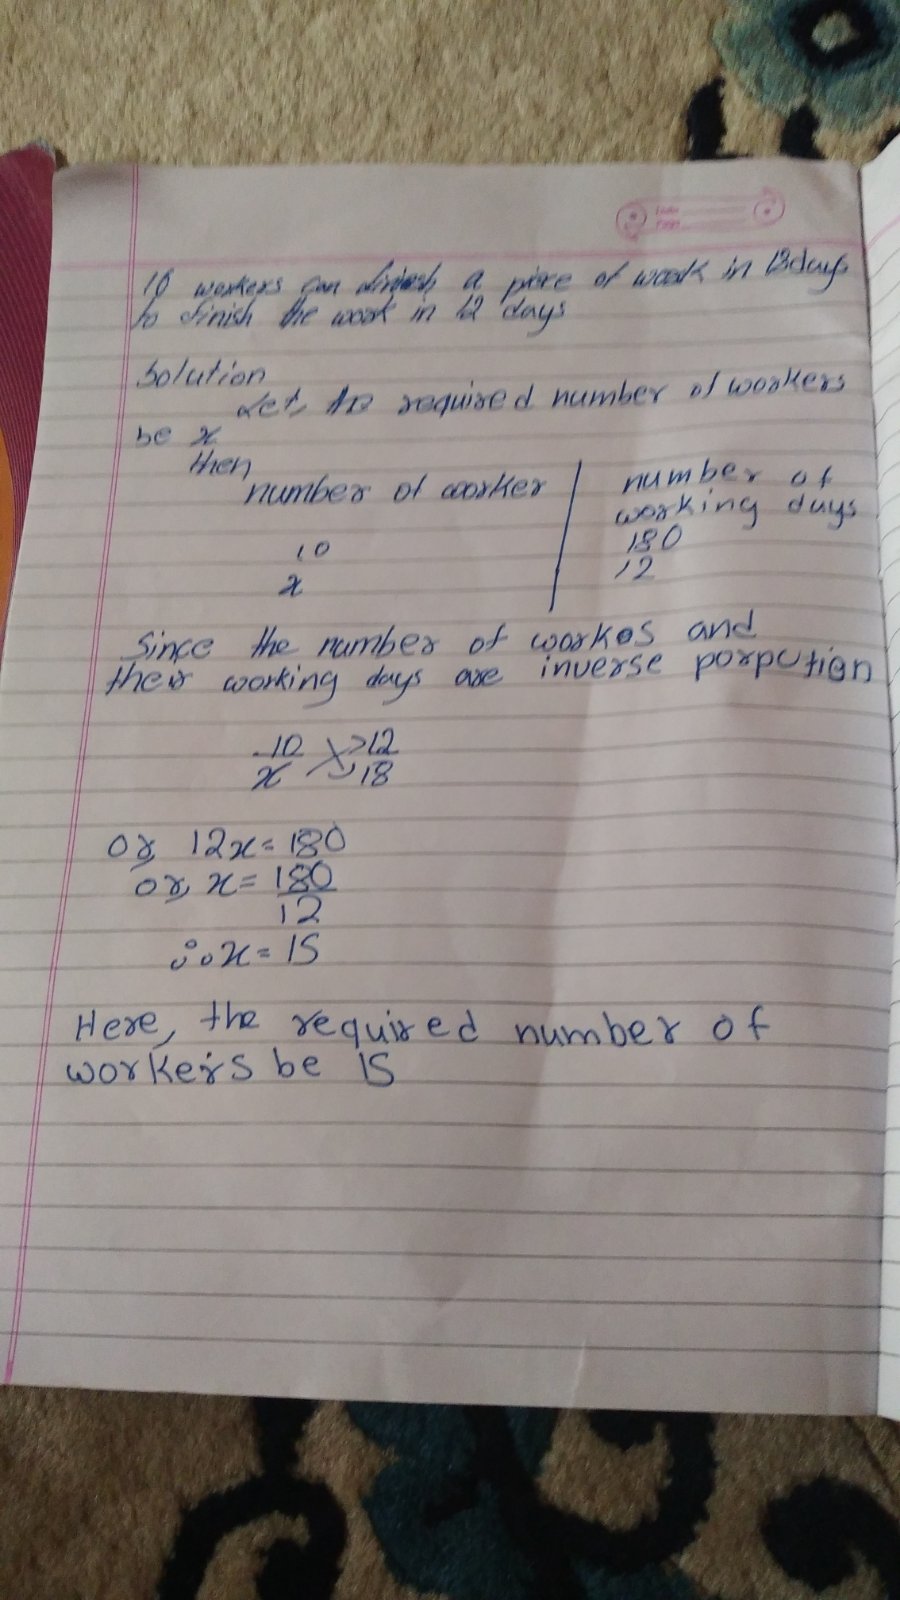 10 workers can finish a piece of work in 18days
to finish the work in 12 days
Solution
Let, the required number of workers
be x
then
number of worker | number of
working days
10 180
x 12
Since the number of workes and
their working days are inverse porpution
10/x 12/18
or, 12x = 180
or, x = 180/12
∴ x = 15
Here, the required number of
workers be 15